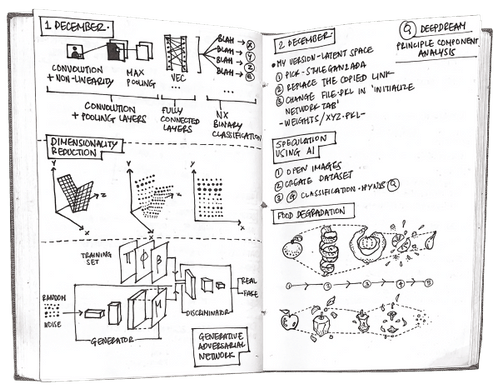 1 DECEMBER.
BLAH → X
BLAH → Y
BLAH → Z
BLAH → B
CONVOLUTION
+ NON-LINEARITY
MAX
POOLING
VEC
...
...
CONVOLUTION
+ POOLING LAYERS
FULLY
CONNECTED
LAYERS
NX
BINARY
CLASSIFICATION
DIMENSIONALITY
REDUCTION
Y
Z
X
Y
Z
X
Y
X
TRAINING
SET
RANDOM
NOISE
GENERATOR
DISCRIMINATOR
REAL
FAKE
GENERATIVE
ADVERSARIAL
NETWORK
2 DECEMBER
DEEPDREAM
PRINCIPLE COMPONENT
ANALYSIS
• MY VERSION-LATENT SPACE
① PICK-
② REPLACE THE COPIED LINK
③ CHANGE FILE.PKL IN 'INITIALIZE
NETWORK TAB'
-WEIGHTS/XYZ.PKL-
SPECULATION
USING AI
① OPEN IMAGES
② CREATE DATASET
③ CLASSIFICATION.
FOOD DEGRADATION
① ② ③ ④ ⑤